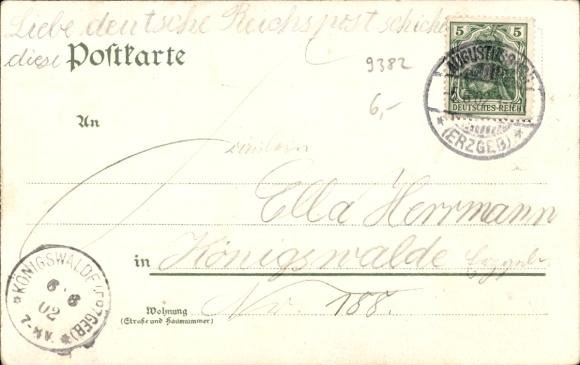 Liebe deutsche Reichspost schicke
diese Postkarte
9382
6,-
5 5
DEUTSCHES REICH
AUGUSTUSBURG
*(ERZGEB)*
An
Ella Herrmann
in Königswalde Erzgeb.
Wohnung
(Straße und Hausnummer)
No. 188.
*KÖNIGSWALDE (ERZGEB)*
6 6
02